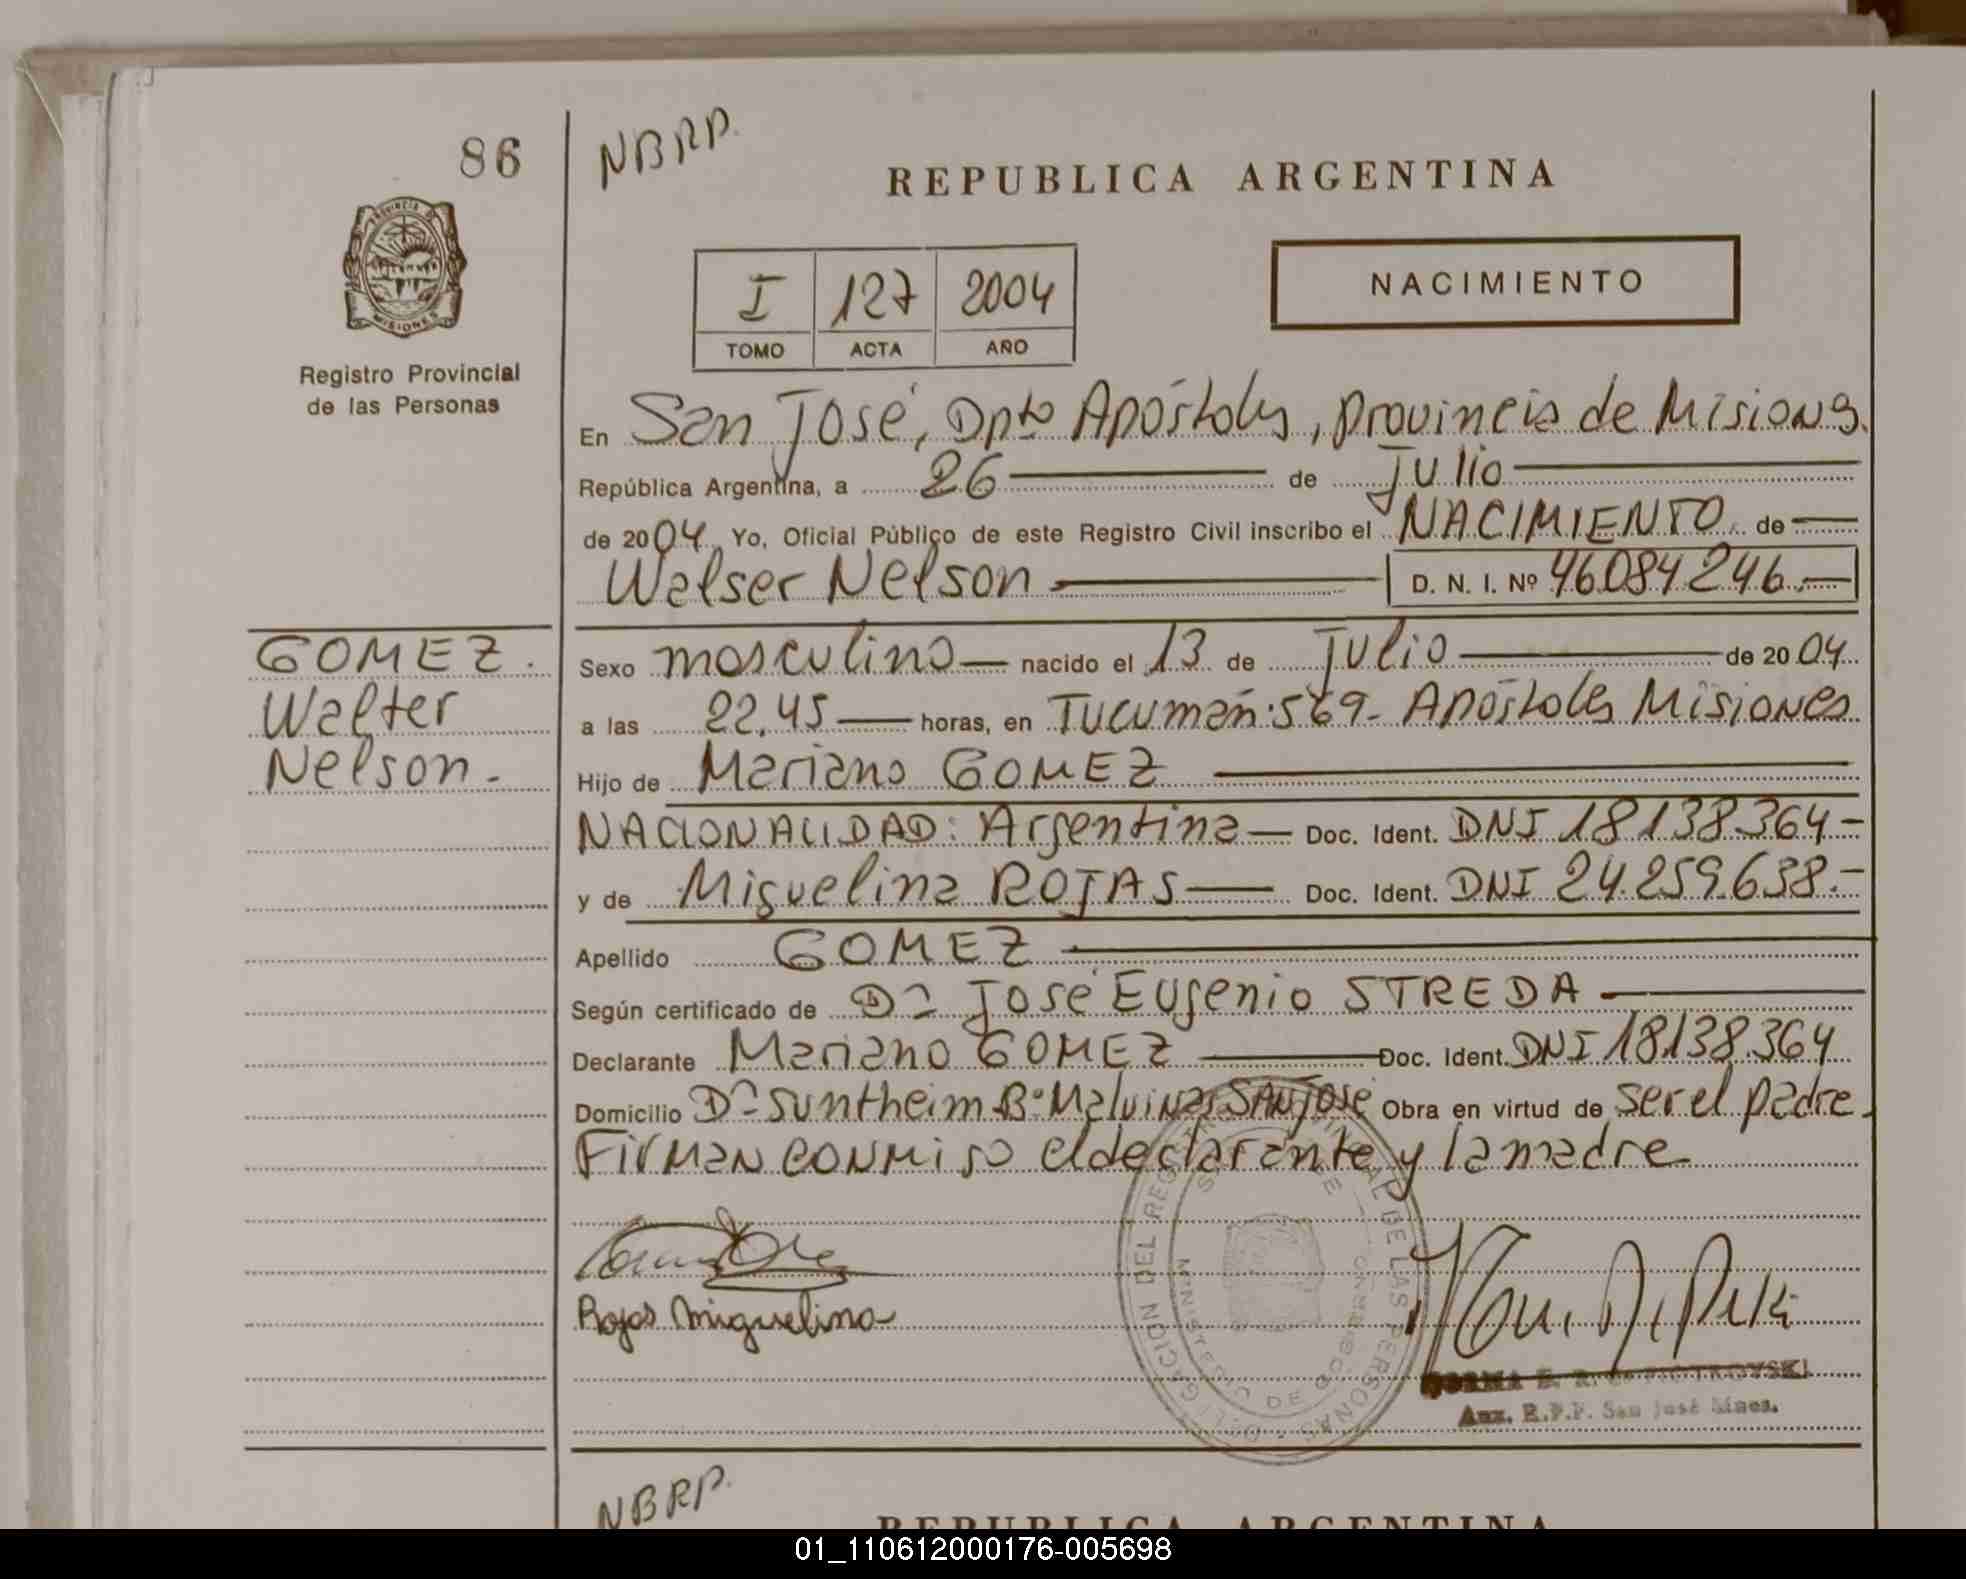 86
NBRP.
REPUBLICA ARGENTINA
I 127 2004
TOMO ACTA AÑO
NACIMIENTO
PROVINCIA DE
MISIONES
Registro Provincial
de las Personas
En San José, Dpto Apóstoles, provincia de Misiones.
República Argentina, a 26 de Julio
de 2004 Yo, Oficial Público de este Registro Civil inscribo el NACIMIENTO de
Walser Nelson D. N. I. Nº 46084246.-
GOMEZ.
Walter
Nelson.-
Sexo masculino nacido el 13 de Julio de 2004
a las 22.45 horas, en Tucumán.569- Apóstoles Misiones
Hijo de Mariano GOMEZ
NACIONALIDAD: Argentina Doc. Ident. DNI 18138364-
y de Miguelina ROJAS Doc. Ident. DNI 24.259.638.-
Apellido GOMEZ
Según certificado de Dr José Eugenio STREDA
Declarante Mariano GOMEZ Doc. Ident. DNI 18138.364
Domicilio Dr Suntheim Bº Malvinas SAN JOSE Obra en virtud de ser el padre.
Firman conmigo el declarante y la madre
Rojas Miguelina
DELEGACION DEL REGISTRO PROVINCIAL DE LAS PERSONAS
MINISTERIO DE GOBIERNO
NORMA E. R. de PIOTROVSKI
Aux. R.P.P. San José Mnes.
NBRP.
REPUBLICA ARGENTINA
01_110612000176-005698